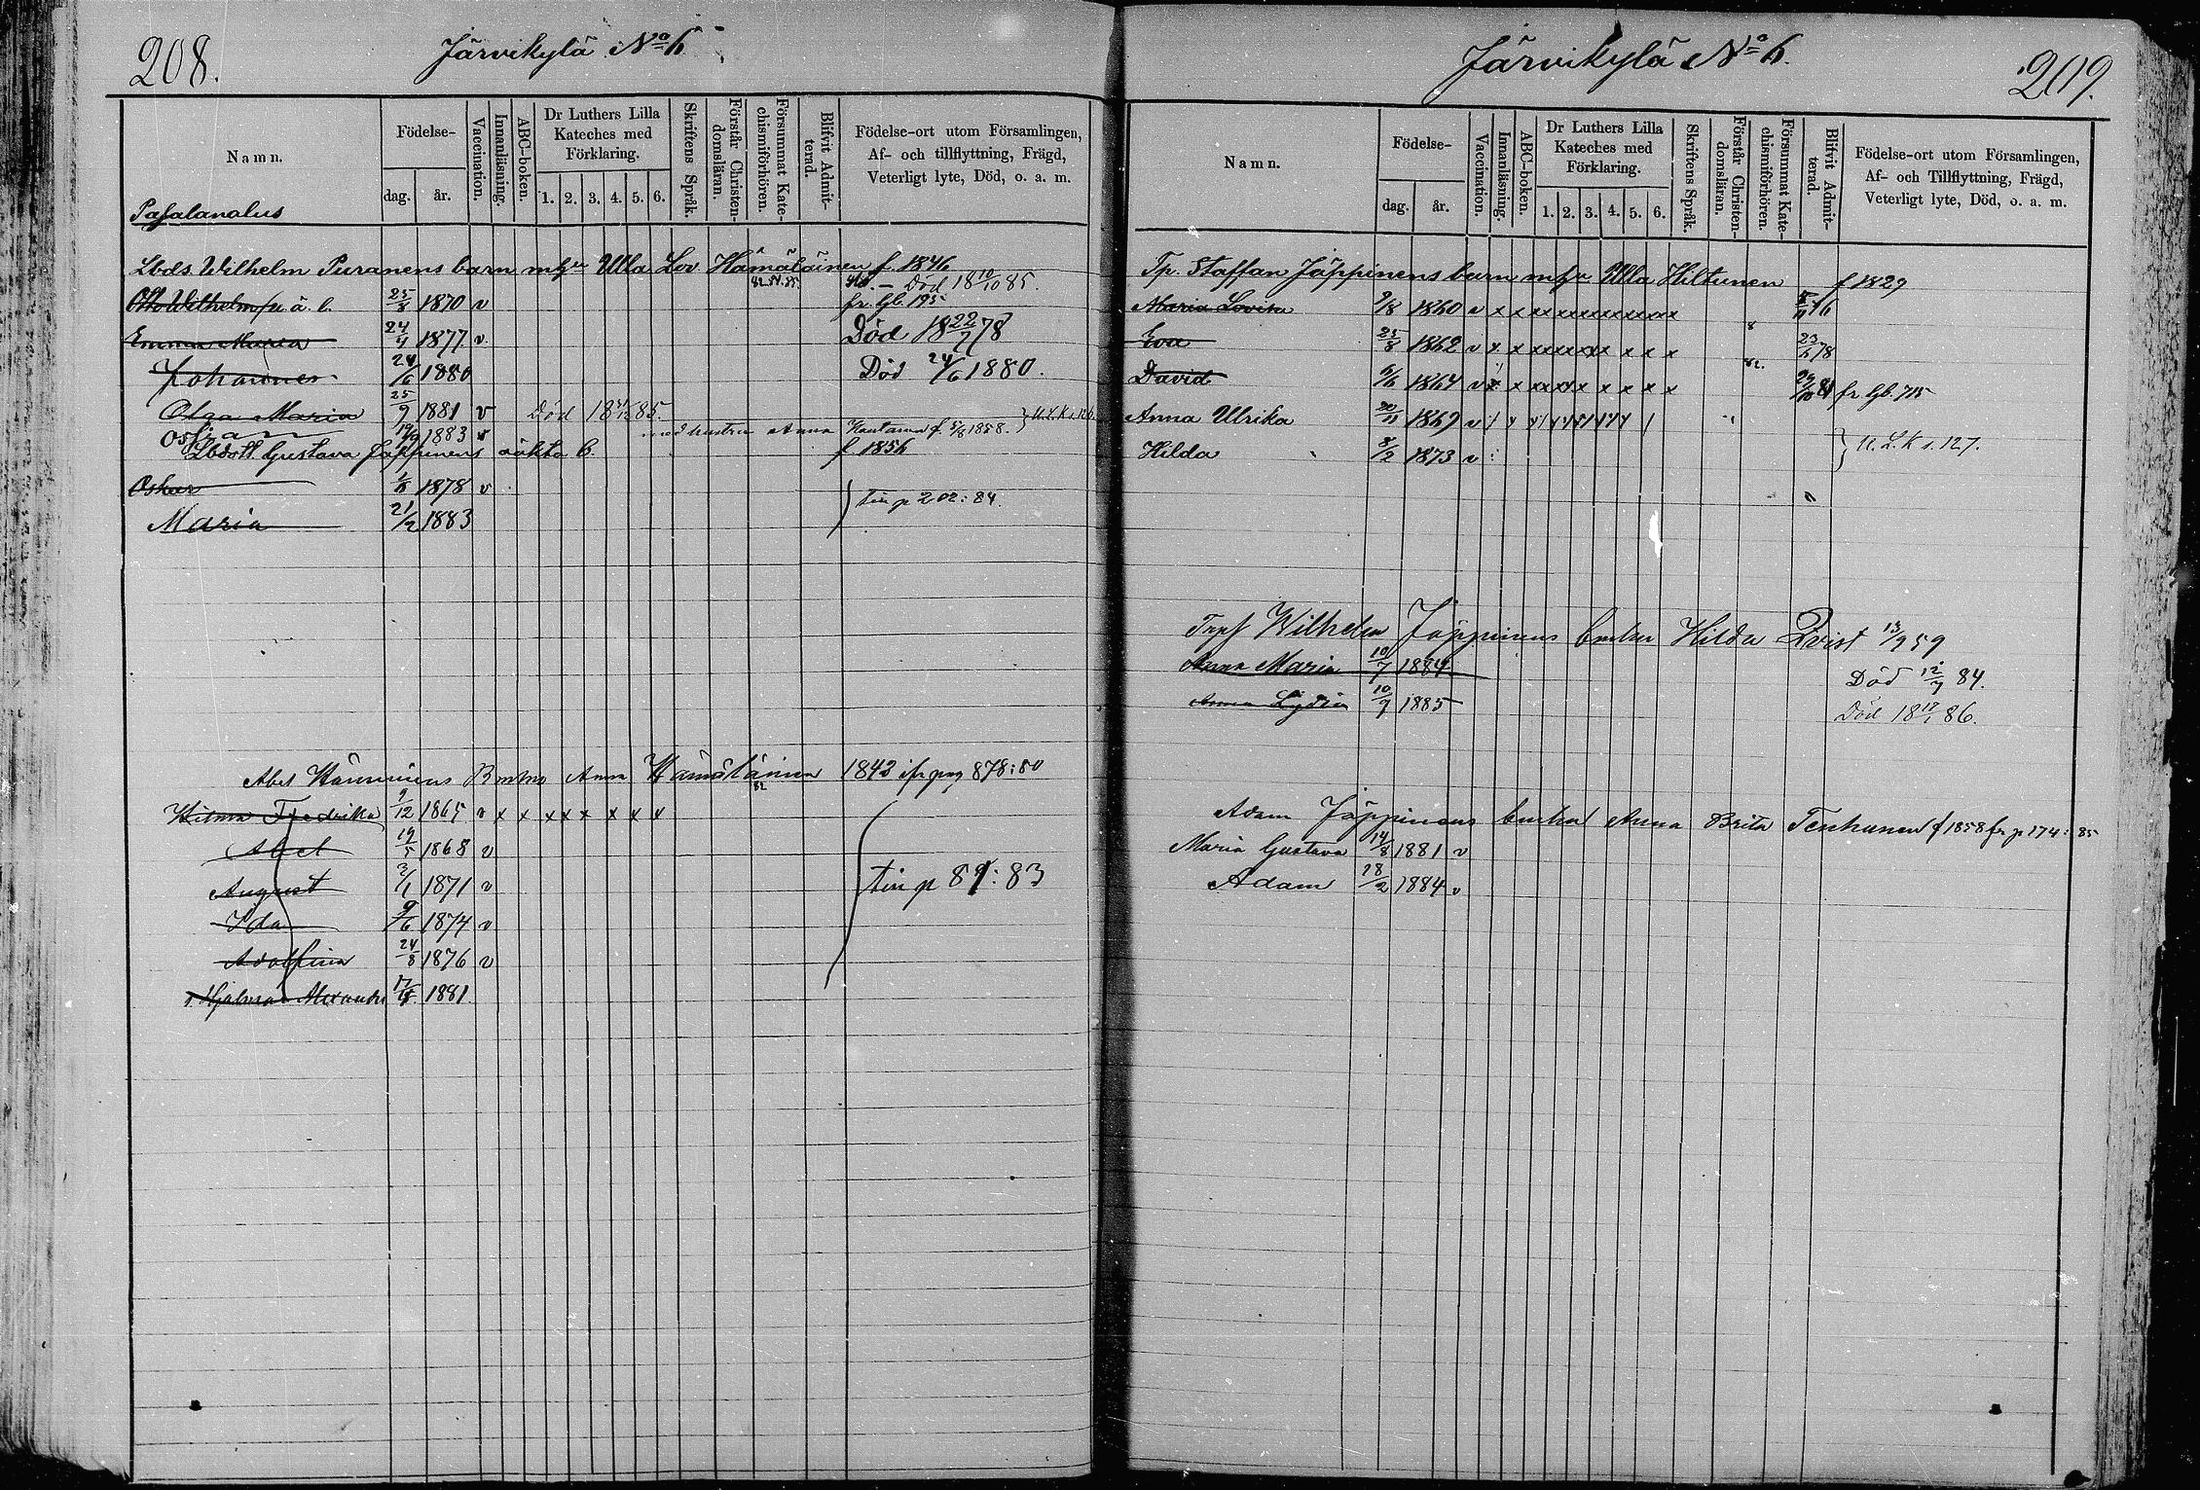 208.
Järvikylä No 6
Namn.
Födelse-
dag.
år.
Vaccination.
Innanläsning.
ABC-boken.
Dr Luthers Lilla Kateches med Förklaring.
1. 2. 3. 4. 5. 6.
Skriftens Språk.
Förstår Christendomsläran.
Försummat Katechismiförhören.
Blifvit Admitterad.
Födelse-ort utom Församlingen,
Af- och tillflyttning, Frägd,
Veterligt lyte, Död, o. a. m.
Lbds. Wilhelm Puranens barn m hu Ulla Lov. Hämäläinen f. 1846
Död 18 10/10 85.
Otto Wilhelm 25/8 1870 v fr. Gb. 195
Emma Maria 24/4 1877 v Död 18 22/7 78
Johannes 24/6 1880 Död 24/6 1880.
Olga Maria 25/9 1881 v Död 18 85.
Oskar 19/9 1883 v med hustru Anna f. 1858. U.L.K. s. 126
Gustava Jäppinens oäkta b. f. 1856
Oskar 1878 v
Maria 21/2 1883
tin p 202: 84.
Abel Hänninens Anna Hämäläinen 1843 ifr pag 878: 80
82
Hilma Fredrika 9/12 1865 v x x x x x x x x
Abel 19/5 1868 v
August 2/1 1871 v
Ida 9/6 1874 v
Adolfina 24/8 1876 v
Hjalmar Alexander 1881
tin p 89: 83
209.
Järvikylä No 6.
Namn.
Födelse-
dag.
år.
Vaccination.
Innanläsning.
ABC-boken.
Dr Luthers Lilla Kateches med Förklaring.
1. 2. 3. 4. 5. 6.
Skriftens Språk.
Förstår Christendomsläran.
Försummat Katechismiförhören.
Blifvit Admitterad.
Födelse-ort utom Församlingen,
Af- och Tillflyttning, Frägd,
Veterligt lyte, Död, o. a. m.
Tp. Staffan Jäppinens barn m hu Ulla Hiltunen f. 1829
Maria Lovisa 9/8 1860 v x x x x x x x x x x
Eva 25/8 1862 v x x x x x x x x x
David 6/6 1864 v x x x x x x x x x fr. Gb. 715
Anna Ulrika 20/11 1869 v
Hilda 8/2 1873 v
U.L.K s. 127.
Wilhelm Jäppinens Hilda Qvist 13/9 59
Anna Maria 10/7 1884 Död 12/7 84.
Anna Lydia 10/9 1885 Död 18 86.
Adam Jäppinens Anna Brita Tenhunen f 1858 fr p 174: 85
Maria Gustava 14/8 1881 v
Adam 28/2 1884 v